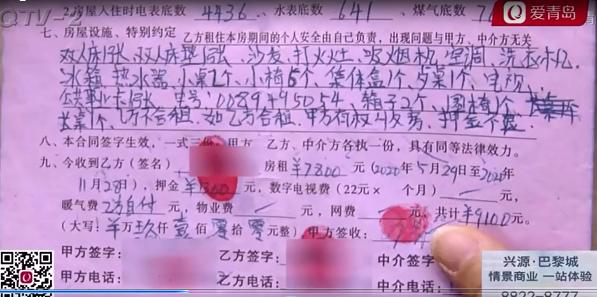 2.房屋入住时电表底数 4436 、水表底数 641 、煤气底数
爱青岛
QTV-2
七、房屋设施、特别约定 乙方租住本房期间的个人安全由自己负责，出现问题与甲方、中介方无关
双人床1张、双人床垫1张、沙发、打火灶、吸烟机、空调、洗衣机、
冰箱、热水器、小桌1个、小椅6个、集体盒1个、歺桌1个、电视、
公共事业卡1张、电号:0089495054、箱子2个、圆椅1个、
桌1个、1方合租、如乙方合租、甲方有权收房、押金不退
八、本合同签字生效，一式三份，甲方、乙方、中介方各执一份，具有同等法律效力。
九、今收到乙方（签名） 房租 ¥7800元（2020年5月29日至2020年
11月28日），押金 ¥1300元，数字电视费（22元× 个月） 元，
暖气费 乙方自付 元，物业费 元，网费 元，共计¥9100元。
（大写）¥ 万 玖仟 壹佰 零拾 零元整）甲方签收：
甲方签字： 乙方签字： 中介签字：
甲方电话： 乙方电话： 中介电话：
兴源·巴黎城
情景商业 一站体验
8822-8777